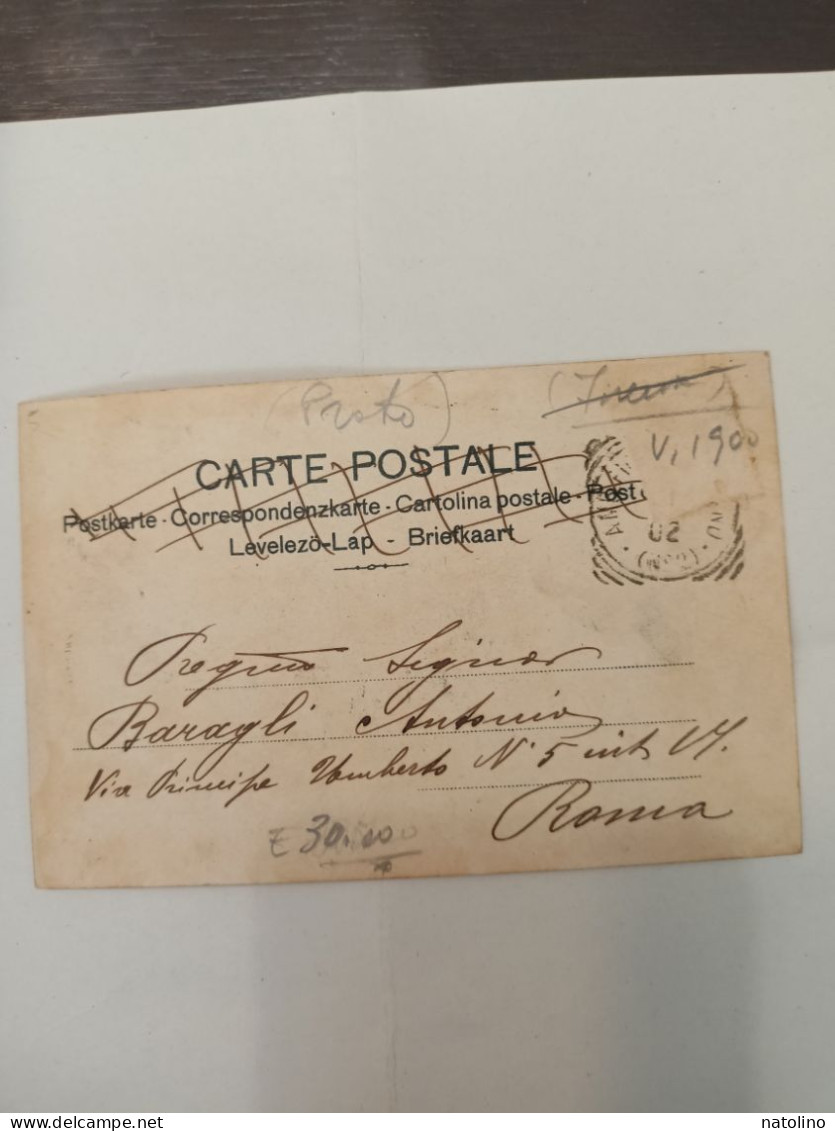 (Prato)
V, 1900
CARTE POSTALE
Postkarte - Correspondenzkarte - Cartolina postale - Post
Levelezö-Lap - Briefkaart
02
Pregmo Signor
Baragli Antonio
Via Principe Umberto N. 5 int
Roma
£ 30.
natolino